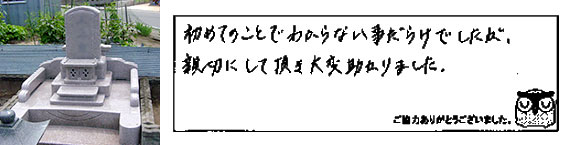 初めてのことでわからない事だらけでしたが、
親切にして頂き大変助かりました。
ご協力ありがとうございました。